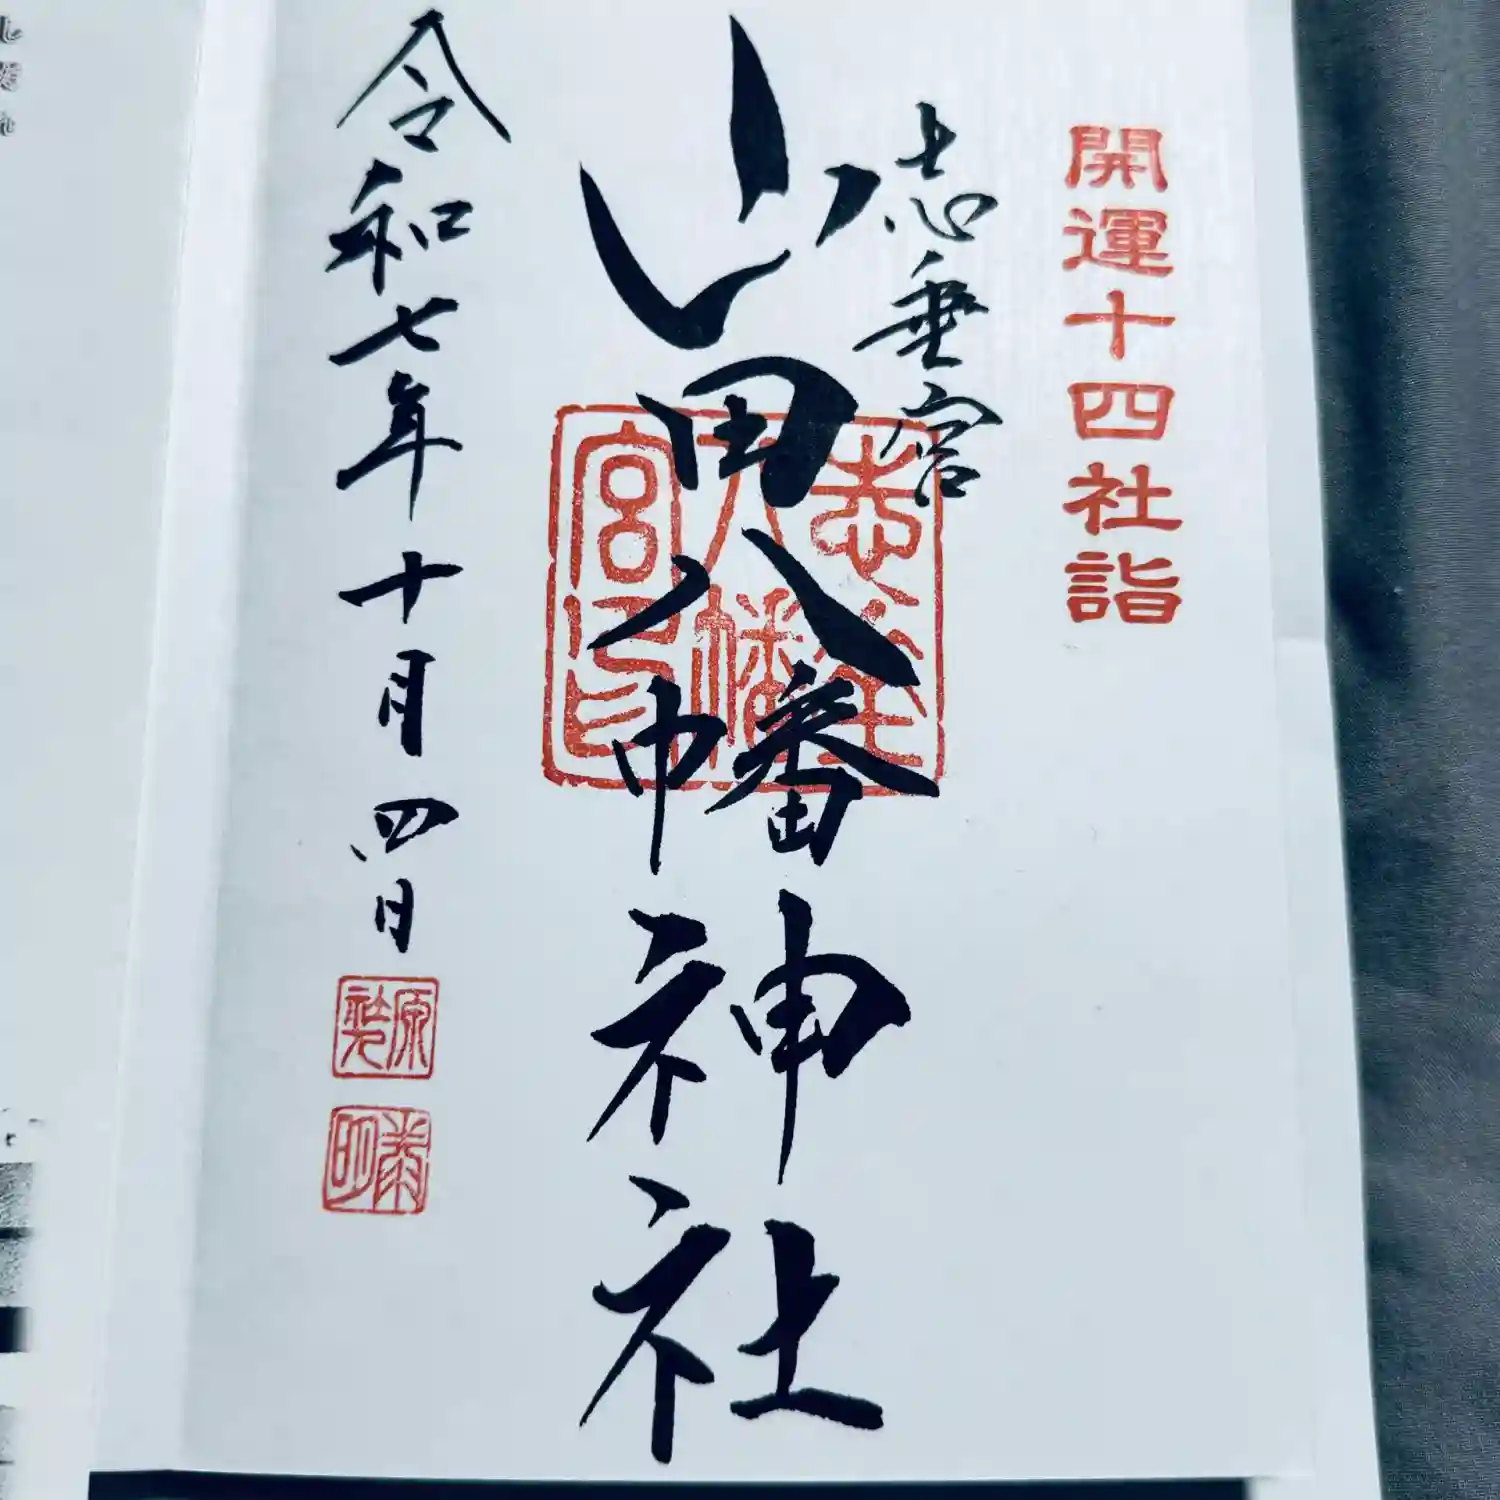 開運十四社詣
志垂宮
山田八幡神社
志垂
八幡
宮印
令和七年十月四日